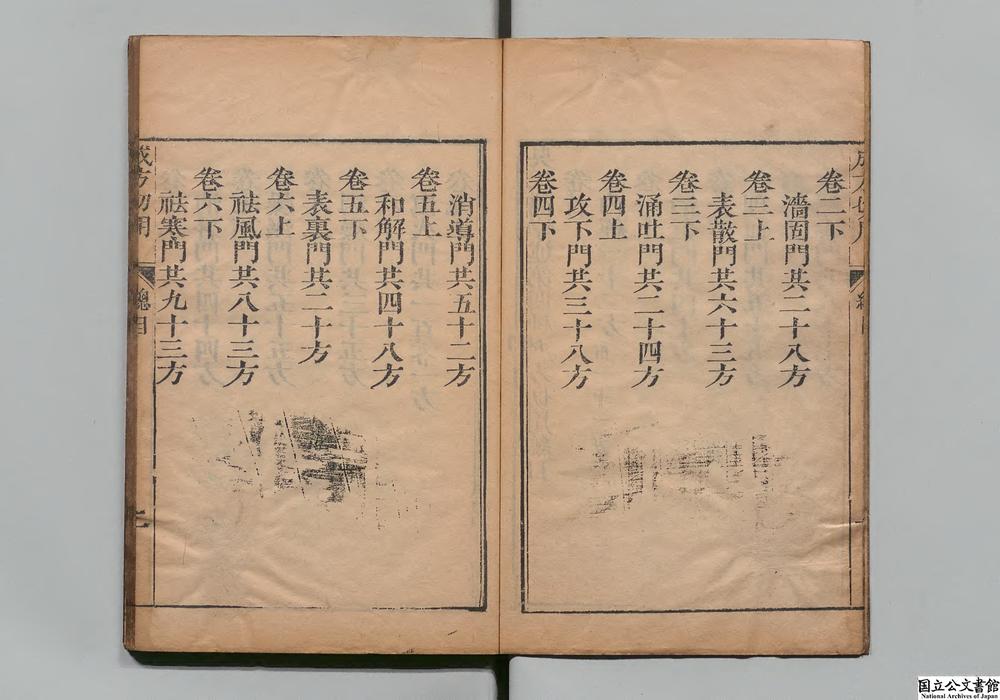 卷二下
濇固門共二十八方
卷三上
表散門共六十三方
卷三下
涌吐門共二十四方
卷四上
攻下門共三十八方
卷四下
消導門共五十二方
卷五上
和解門共四十八方
卷五下
表裏門共二十方
卷六上
祛風門共八十三方
卷六下
祛寒門共九十三方
成方切用
總目
国立公文書館
National Archives of Japan